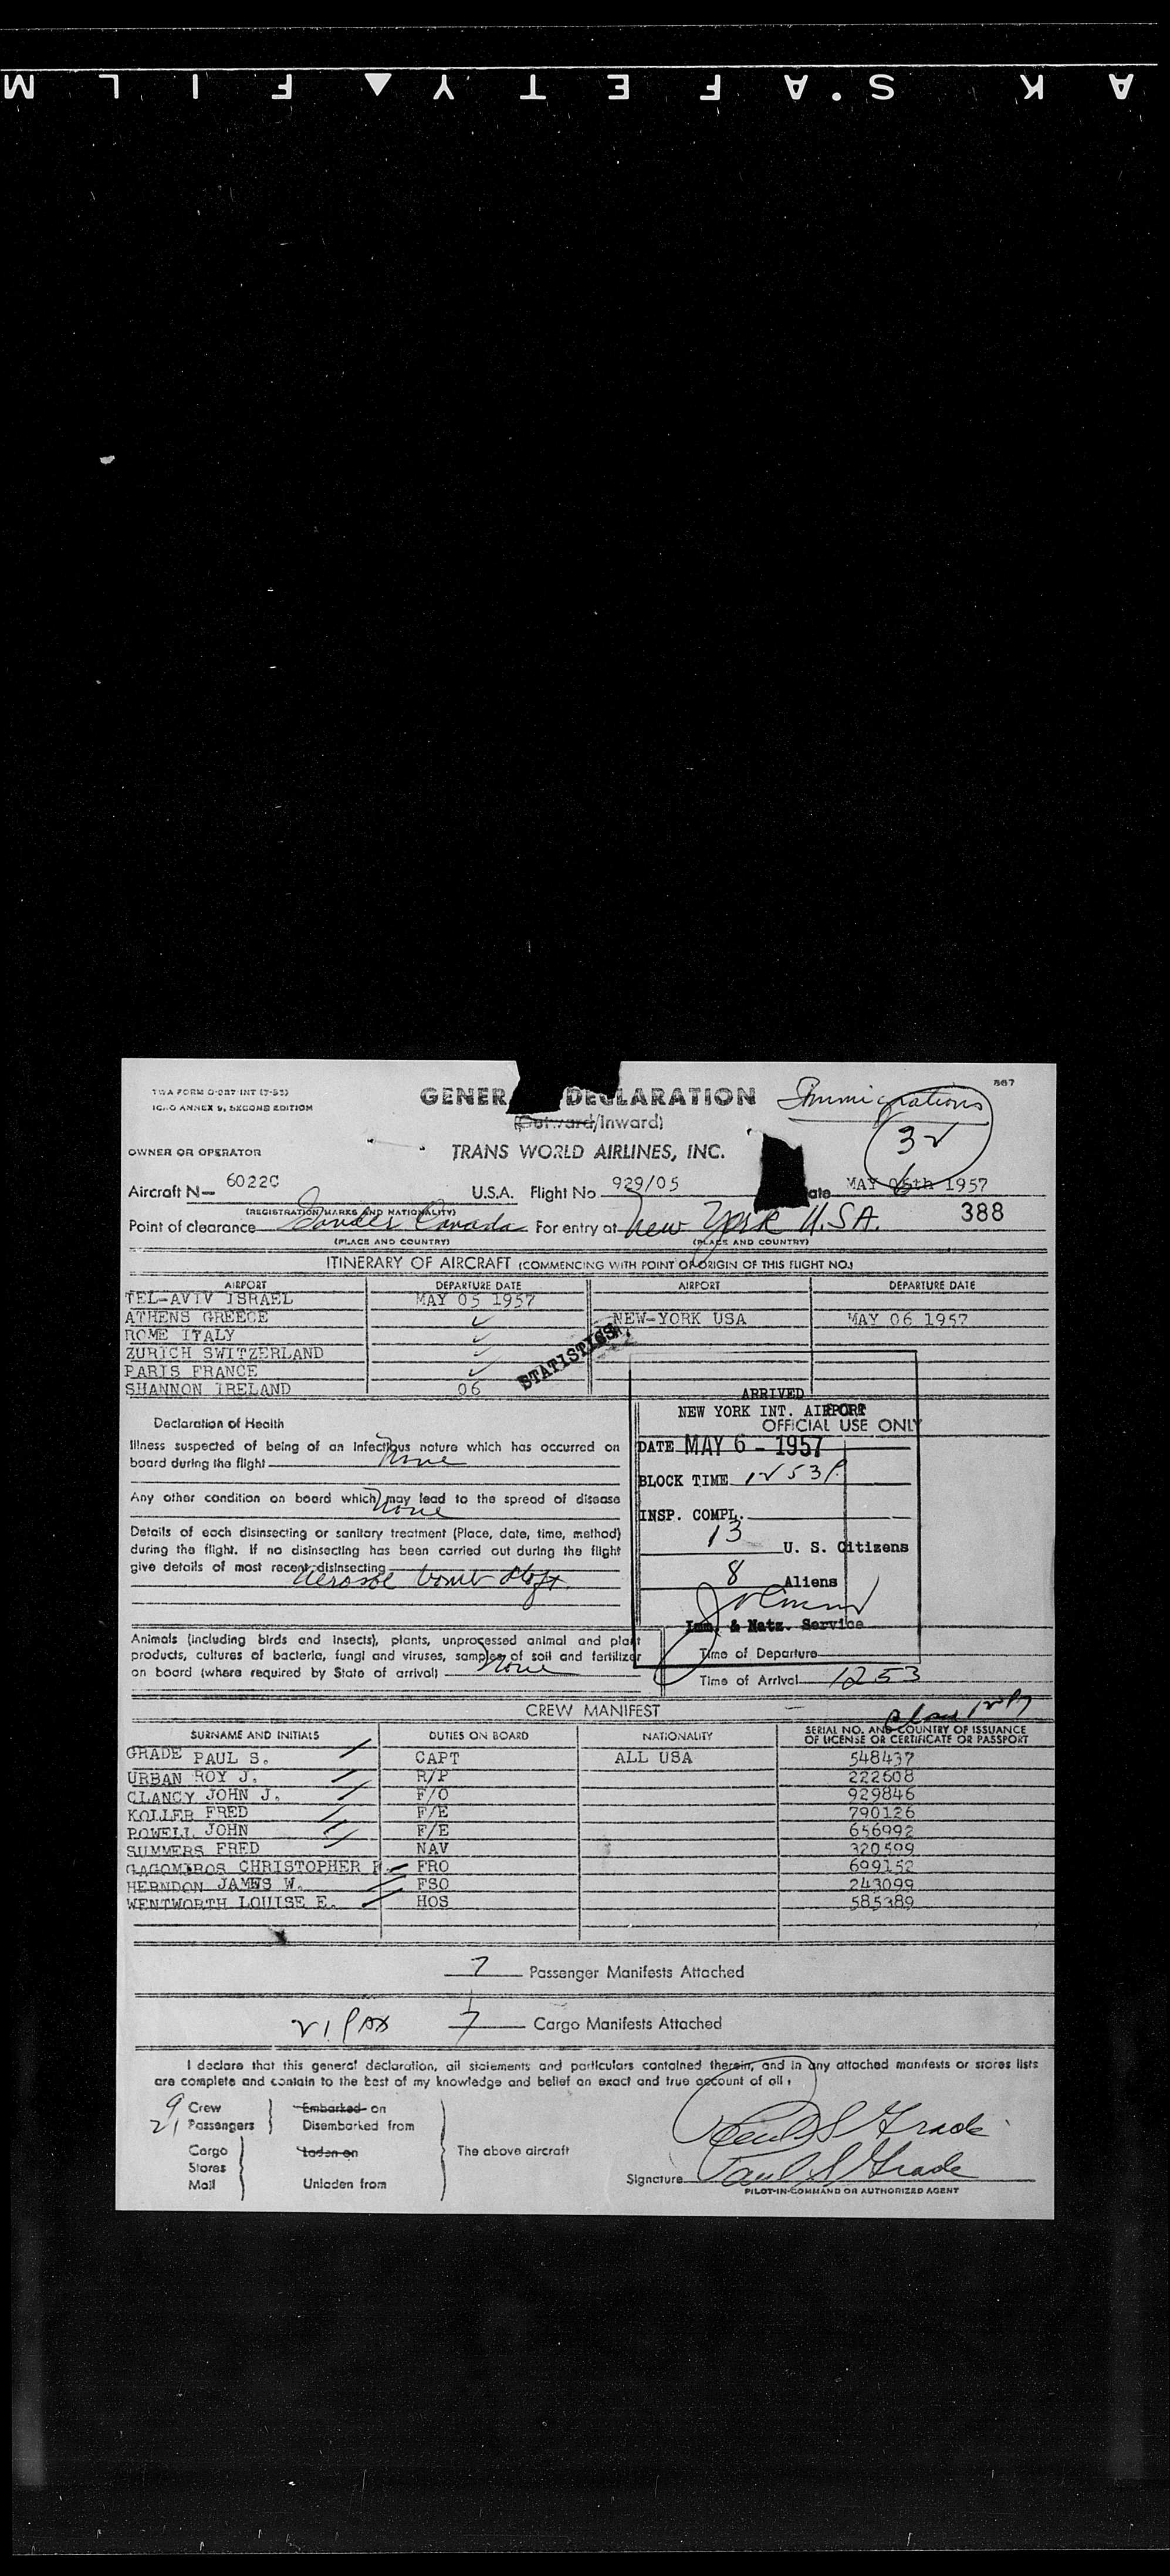 A K S·A F E T Y ▲ F I L M
567
TWA FORM O-087 INT (7-53)
ICAO ANNEX 9, SECOND EDITION
GENER DECLARATION
Immigrations
(Outward/Inward)
32
OWNER OR OPERATOR
TRANS WORLD AIRLINES, INC.
Aircraft N— 6022C U.S.A. Flight No 929/05 ate MAY 06th 1957
(REGISTRATION MARKS AND NATIONALITY)
388
Point of clearance Gander Canada For entry at New York U.S.A.
(PLACE AND COUNTRY) (PLACE AND COUNTRY)
ITINERARY OF AIRCRAFT (COMMENCING WITH POINT OF ORIGIN OF THIS FLIGHT NO.)
AIRPORT DEPARTURE DATE AIRPORT DEPARTURE DATE
TEL-AVIV ISRAEL MAY 05 1957
ATHENS GREECE ✓ NEW-YORK USA MAY 06 1957
ROME ITALY ✓
ZURICH SWITZERLAND ✓
PARIS FRANCE ✓
SHANNON IRELAND 06
STATISTICS
ARRIVED
NEW YORK INT. AIRPORT
OFFICIAL USE ONLY
DATE MAY 6 - 1957
BLOCK TIME 1253P.
INSP. COMPL.
13 U. S. Citizens
8 Aliens
Imm. & Natz. Service
Time of Departure
Time of Arrival 1253
Declaration of Health
Illness suspected of being of an infectious nature which has occurred on
board during the flight None
Any other condition on board which may lead to the spread of disease
None
Details of each disinsecting or sanitary treatment (Place, date, time, method)
during the flight. If no disinsecting has been carried out during the flight
give details of most recent disinsecting
Aerosol bomb
Animals (including birds and insects), plants, unprocessed animal and plant
products, cultures of bacteria, fungi and viruses, samples of soil and fertilizer
on board (where required by State of arrival) None
CREW MANIFEST
SURNAME AND INITIALS DUTIES ON BOARD NATIONALITY SERIAL NO. AND COUNTRY OF ISSUANCE
OF LICENSE OR CERTIFICATE OR PASSPORT
GRADE PAUL S. CAPT ALL USA 548437
URBAN ROY J. R/P 222608
CLANCY JOHN J. F/O 929846
KOLLER FRED F/E 790126
POWELL JOHN F/E 656992
SUMMERS FRED NAV 320599
LAGOMIROS CHRISTOPHER P. FRO 699152
HERNDON JAMES W. FSO 243099
WENTWORTH LOUISE E. HOS 585389
7 Passenger Manifests Attached
21 PAX 7 Cargo Manifests Attached
I declare that this general declaration, all statements and particulars contained therein, and in any attached manifests or stores lists
are complete and contain to the best of my knowledge and belief an exact and true account of all:
9 Crew
21 Passengers
Embarked on
Disembarked from
Cargo
Stores
Mail
Laden on
Unladen from
The above aircraft
Paul S Grade
Signature Paul S Grade
PILOT-IN-COMMAND OR AUTHORIZED AGENT